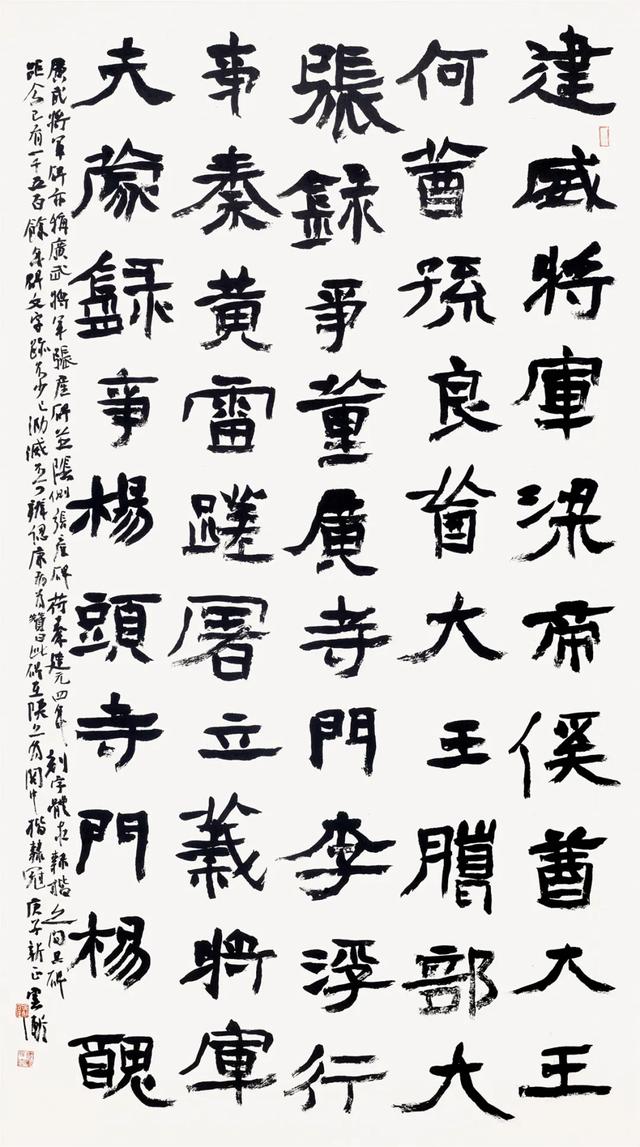 建威將軍梁帝傒酋大王
何酋孫良酋大王騰部大
張錄事董廣寺門李浮行
事秦黃雷蹉屠立義將軍
夫蒙錄事楊頭寺門楊醜
廣武將軍碑亦稱廣武將軍張產碑並張產碑苻秦建元四年刻字體在隸楷之間且碑
距今已有一千五百餘年碑文字跡不少已泐滅不可辨認康有為贊曰此碑在陝為關中楷隸冠庚子新正